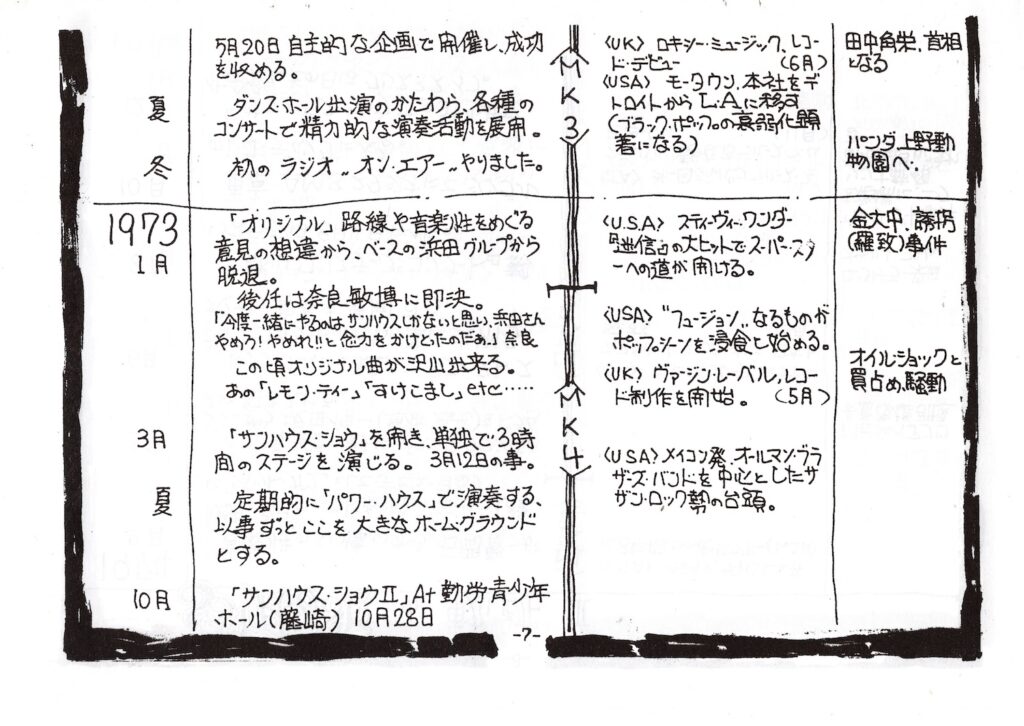 5月20日 自主的な企画で開催し、成功
を収める。
夏
ダンス・ホール出演のかたわら、各種の
コンサートで精力的な演奏活動を展開。
冬
初の ラジオ〟オン・エアー〟やりました。
1973
1月
「オリジナル」路線や音楽性をめぐる
意見の想違から、ベースの浜田グループから
脱退。
後任は奈良敏博に即決。
「今度一緒にやるのはサンハウスしかないと思い、浜田さん
やめろ!やめれ!!と念力をかけとったのだぁ。」奈良
この頃オリジナル曲が沢山出来る。
あの「レモン・ティー」「すけこまし」etc……
3月
「サンハウス・ショウ」を開き、単独で3時
間のステージを演じる。 3月12日の事。
夏
定期的に「パワー・ハウス」で演奏する、
以事ずっとここを大きなホーム・グラウンド
とする。
10月
「サンハウス・ショウⅡ」At 勤労青少年
ホール(藤崎) 10月28日
MK3
MK4
〈UK〉 ロキシー・ミュージック、レコ
ード・デビュー (6月)
〈USA〉 モータウン、本社をデ
トロイトから L.Aに移す
(ブラック・ポップの衰弱化顕
著になる)
〈U.S.A〉 スティーヴィー・ワンダー
『迷信』の大ヒットでスーパースター
への道が開ける。
〈USA〉 〝フュージョン〟なるものが
ポップシーンを浸食し始める。
〈UK〉 ヴァージン・レーベル、レコー
ド制作を開始。 (5月)
〈USA〉メイコン発、オールマン・ブラ
ザーズ・バンドを中心としたサ
ザン・ロック勢の台頭。
田中角栄、首相
となる
パンダ上野動
物園へ.
金大中、誘拐
(羅致)事件
オイルショックと
買占め騒動
-7-